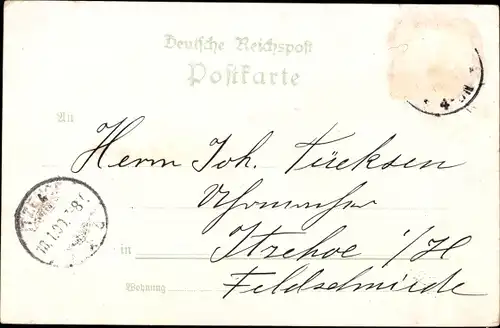 Deutsche Reichspost
Postkarte
An
Herrn Joh. Türcksen
Uhrmacher
in Itzehoe i/H
Wohnung Feldschmiede